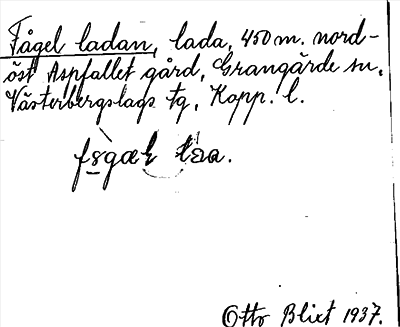 Fågel ladan, lada, 450 m. nord-
öst Aspfallet gård, Grangärde sn,
Västerbergslags tg, Kopp. l.
Otto Blixt 1937.